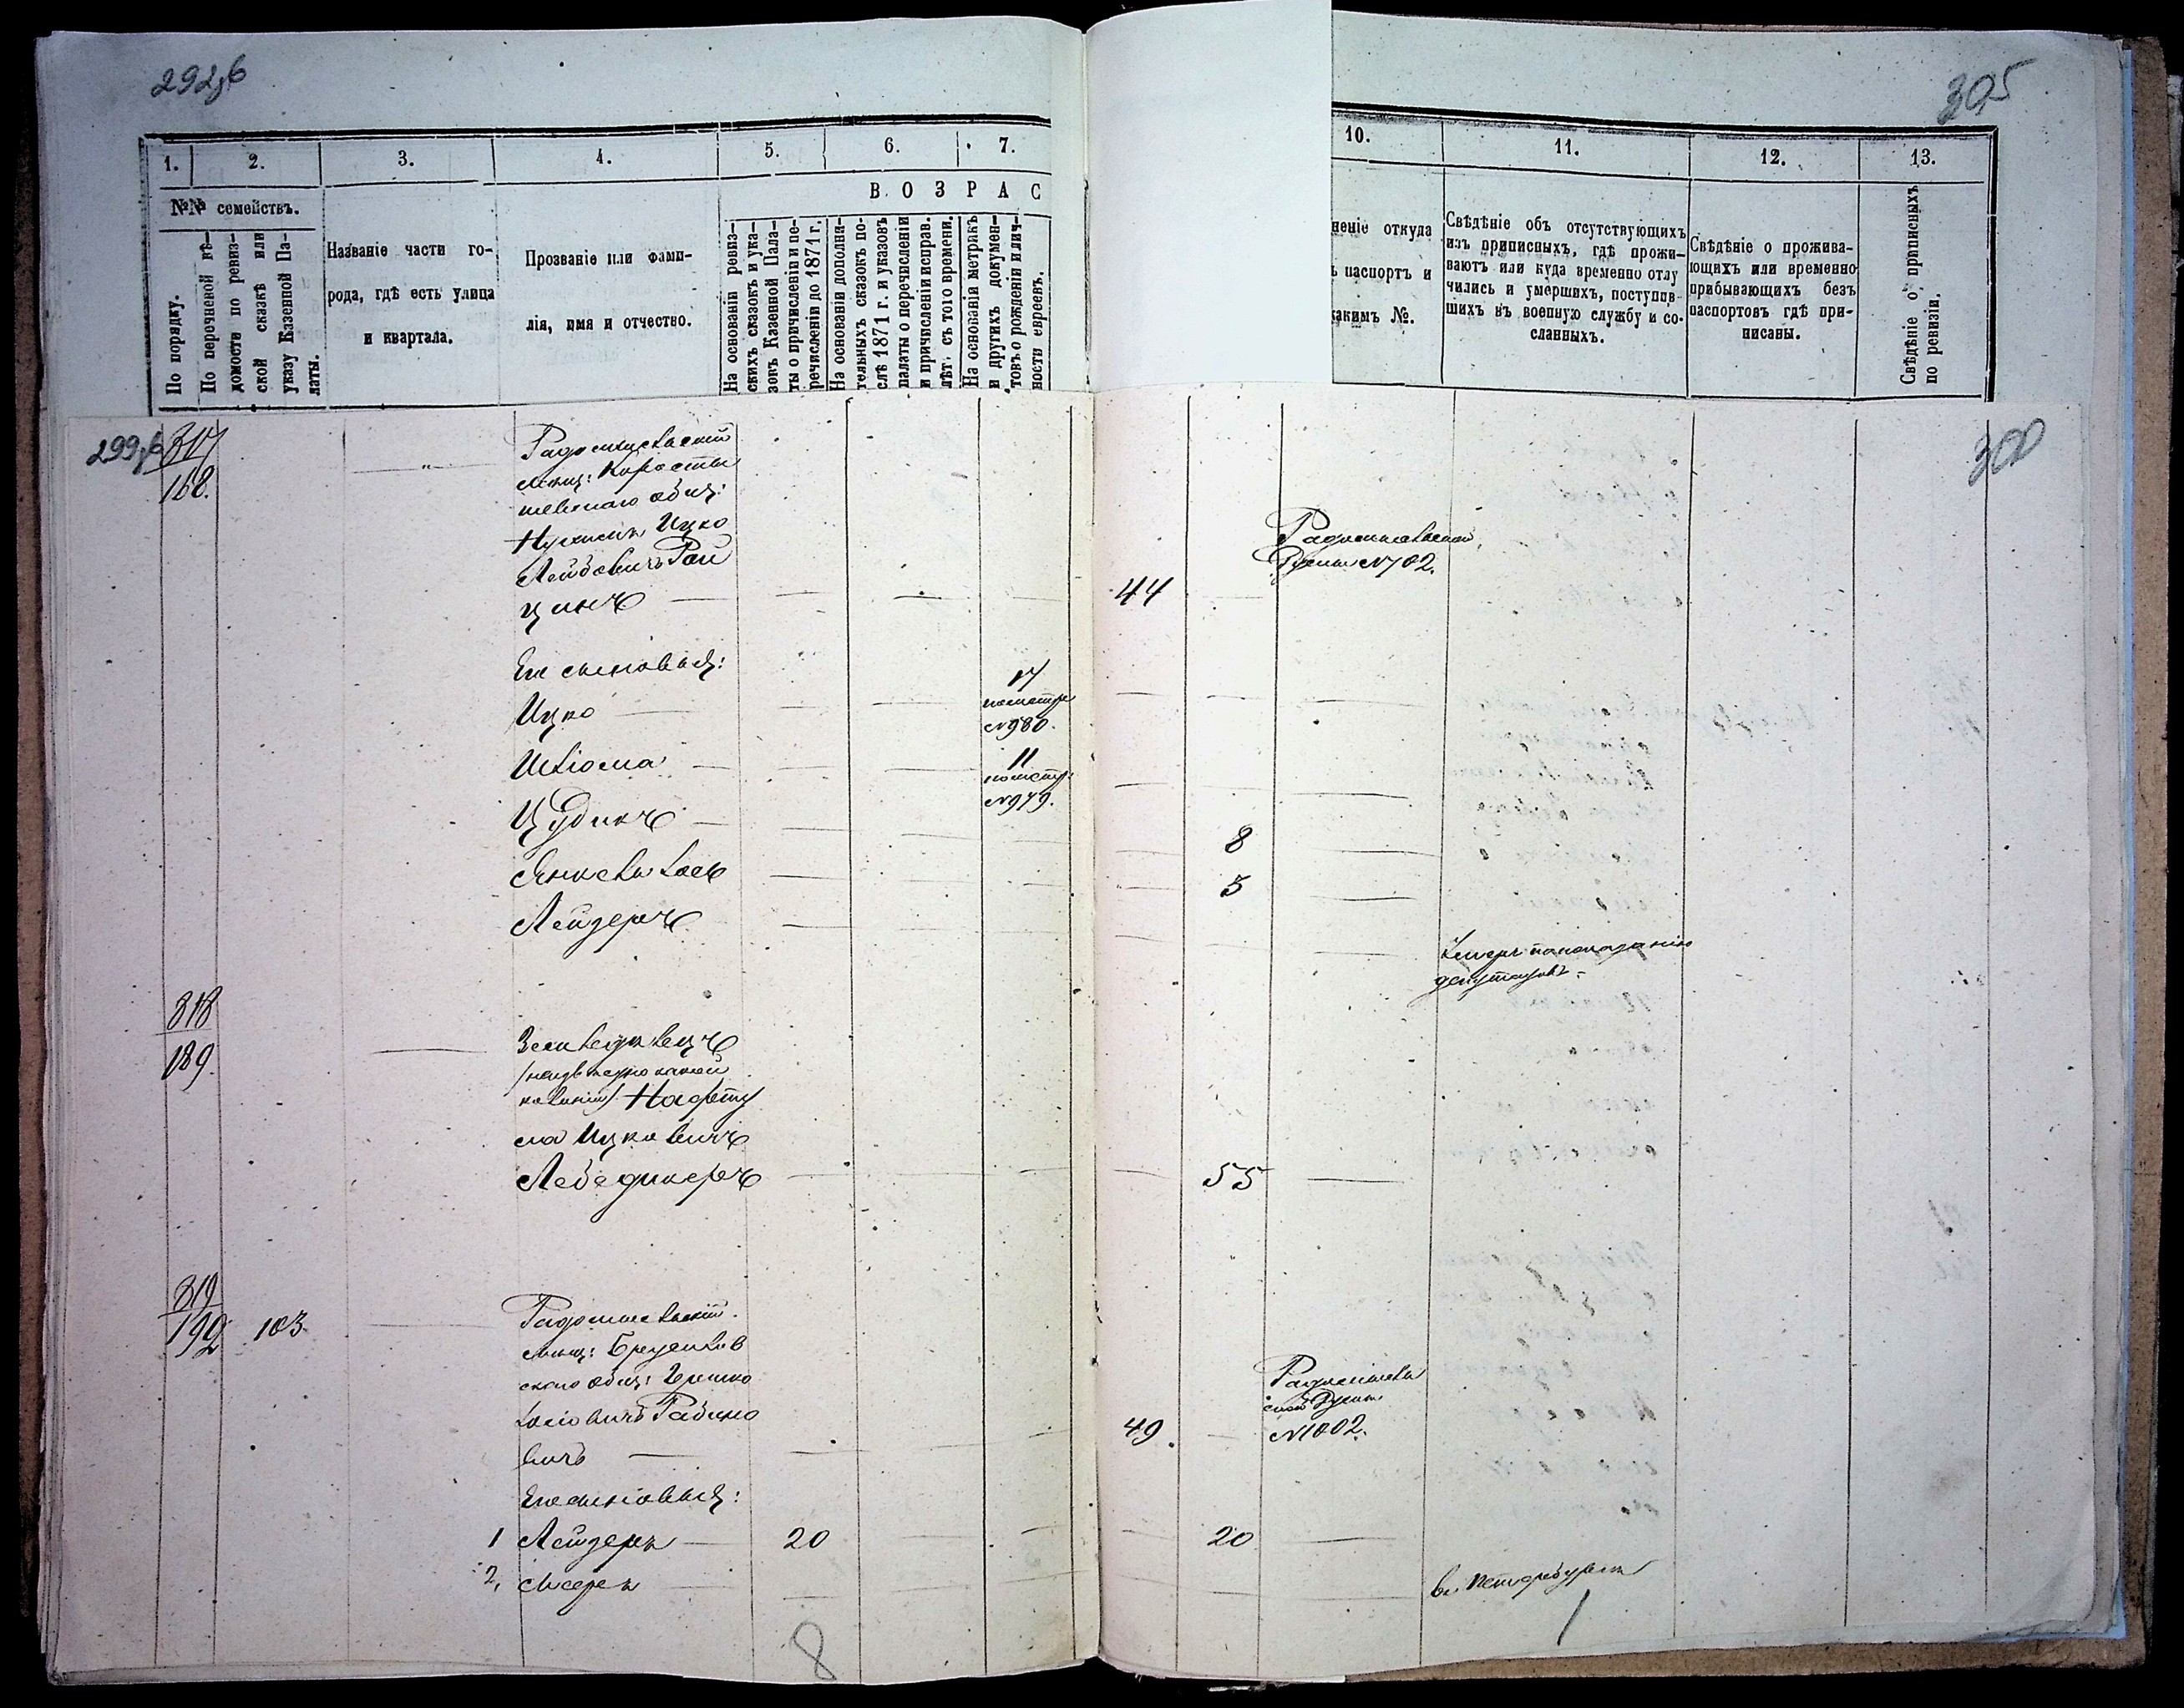 292об
305
1.
2.
3.
4.
5.
6.
7.
10.
11.
12.
13.
№№ семействъ.
По порядку.
По перечневой вѣ-
домости по ревиз-
ской сказкѣ или
указу Казенной Па-
латы.
Названіе части го-
рода, гдѣ есть улица
и квартала.
Прозваніе или фами-
лія, имя и отчество.
В О З Р А С
На основаніи ревиз-
скихъ сказокъ и ука-
зовъ Казенной Пала-
ты о причисленіи и пе-
речисленіи до 1871 г.
На основаніи дополни-
тельныхъ сказокъ по-
слѣ 1871 г. и указовъ
палаты о перечисленіи
и причисленіи исправ.
лѣт. съ того времени.
На основаніи метрикъ
и другихъ докумен-
товъ о рожденіи и лич-
ности евреевъ.
неніе откуда
ъ паспортъ и
какимъ №.
Свѣдѣніе объ отсутствующихъ
изъ приписныхъ, гдѣ прожи-
ваютъ или куда временно отлу
чились и умершихъ, поступив-
шихъ въ военную службу и со-
сланныхъ.
Свѣдѣніе о прожива-
ющихъ или временно
прибывающихъ безъ
паспортовъ гдѣ при-
писаны.
Свѣдѣніе о приписныхъ
по ревизіи.
299об
300
317
168.
Радомысльскій
мѣщ: Коросты
шевскаго общ:
Ицко
Лейбовичъ Рой
цинъ
44
Радомысльской
№ 702.
Его сыновья:
Ицко
17
по метр
№ 980.
11
по метр:
№ 979.
8
Янкель Іось
5
Лейзеръ
Умеръ по показанію
депутатовъ.
318
189.
Нафту
ла Ицковичъ
Лебединеръ
55
319
192
103.
Радомысльскій
мѣщ: Брусилов
скаго общ: Гершко
Іосіовичъ Рабино
вичъ
49.
Радомысль
ской
№ 1002.
Его сыновья:
1 Лейзеръ
20
20
2, Мееръ
въ Петербургѣ
8
1